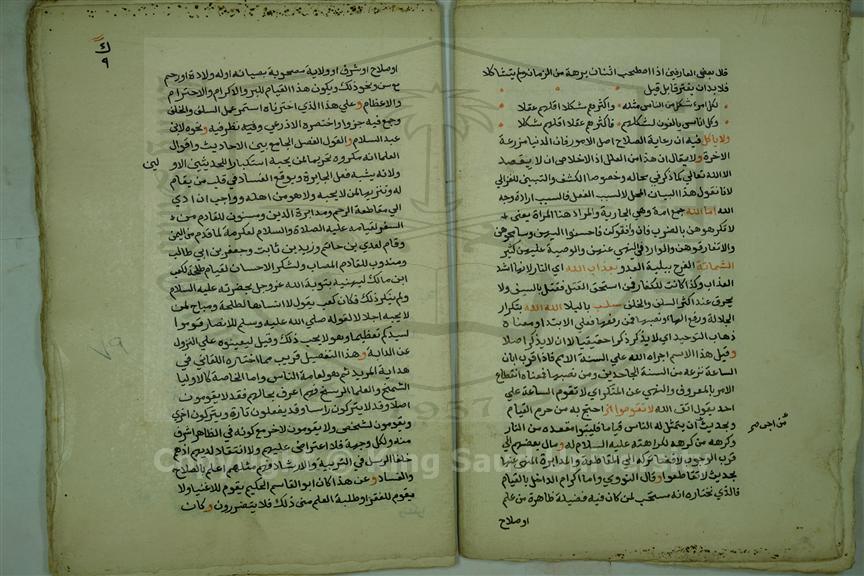 قال بعض العارفين اذا اصطحب اثنان برهة من الزمان ولم يتشاكلا
فلا بد ان يفترقا بل قيل
لكل امرئ شكل من الناس مثله واكثرهم شكلا اقلهم عقلا
وكل اناس يالفون لشكلهم فاكثرهم عقلا اقلهم شكلا
ولا ياكل فيه ان رعاية الصلاح اصل الامور فان الدنيا مزرعة
الاخرة ولا يقال ان هذا من العلل اذ الاخلاص ان لا يقصد
الا الله تعالى كما ذكر في محاله وخصوصا الكشف والتبيين للغزالي
لانا نقول هذا البيان المحل لا لسبب الفعل فالسبب ارادة وجه
الله اماء الله جمع امة وهي الجارية والمراد هنا المراة يعني
لا تكرهوهن بالضرب فان وافقوكن فاحسنوا اليهن وسامحوهن
والا تفارقوهن والوارد في النهي عنهن والوصية عليهن كثير
الشماتة الفرح ببلية العدو بعذاب الله اي النار لانها اشد
العذاب وكذا كانت للكفار فمن استحق القتل فقتل بالسيف ولا
يحرق عند اكثر السلف والخلف بالبلا الله الله بتكرار
الجلالة ورفعها ونصبها فمن رفعها فعلى الابتدا ومعناه
ذهاب التوحيد اي لا يذكر ذكرا حقيقيا لا ان لا يذكر اصلا
وقيل هذا الاسم اجراه الله على السنة الامم فاذا قرب ابان
الساعة نزعه من السنة الجاحدين ومن نصبها فمعناه انقطاع
الامر بالمعروف والنهي عن المنكر اي لا تقوم الساعة على
احد يقول اتق الله لا تقوموا احتج به من حرم القيام
وبحديث ان يتمثل له الناس قياما فليتبوا مقعده من النار
وكرهه من كرهه لكراهته عليه السلام له ومال بعضهم الى
قرب الوجوب لافضا تركه الى المقاطعة والمدابرة المنهي عنها
بحديث لا تقاطعوا وقال النووي واما اكرام الداخل بالقيام
فالذي نختاره انه مستحب لمن كان فيه فضيلة ظاهرة من علم
او صلاح
ك
٩
او صلاح او شرف او ولاية مصحوبة بصيانة او له ولادة او رحم
مع سن ونحو ذلك ويكون هذا القيام للبر والاكرام والاحترام
والاعظام وعلى هذا الذي اخترناه استمر عمل السلف والخلف
وجمع فيه جزوا واختصره الاذرعي وفيه نظر فيه ونحوه لابن
عبد السلام والقول الفصل الجامع بين الاحاديث واقوال
العلما انه مكروه تحريما لمن يحبه استكبارا للحديثين الاولين
ولانه يشبه فعل الجبابرة ويوقع الفساد في قلب من يقام
له وتنزيها لمن لا يحبه ولا هو من اهله وواجب ان ادى
الى مقاطعة الرحم ومدابرة الدين ومسنون للقادم من
السفر لقيامه عليه الصلاة والسلام لعكرمة لما قدم من اليمن
وقام لعدي بن حاتم وزيد بن ثابت وجعفر بن ابي طالب
ومندوب للقادم المصاب ولشكر الاحسان لقيام طلحة لكعب
ابن مالك ليهنيه بتوبة الله عز وجل بحضرته عليه السلام
ولم ينكر ذلك فكان كعب يقول لا انساها لطلحة ومباح لمن
لا يحبه اجلالا لقوله صلى الله عليه وسلم للانصار قوموا
لسيدكم تعظيما وهو لا يحب ذلك وقيل ليعينوه على النزول
عن الدابة وهذا التفصيل قريب مما اختاره اللقاني في
هداية المريد ثم هو لعامة الناس واما الخاصة كالاوليا
والعلما فهم اعرف بحالهم فقد لا يقومون
اصلا وقد لا يتركون راسا وقد يفعلون تارة ويتركون اخرى
ويقومون لشخص ولا يقومون لاخر مع كونه في الظاهر اشرف
منه ولكل وجهة فلا اعتراض عليهم ولا انتقاد لديهم اذ هم
خلفا الرب في التربية والارشاد فهم مثلهم اعلم بالصلاح
والفساد وعن هذا كان ابو القاسم الحكيم يقوم للاغنيا ولا
يقوم للفقرا وطلبة العلم متى ذلك فلا يتضررون وكان
٧٩
1957
Copyright © King Saud University